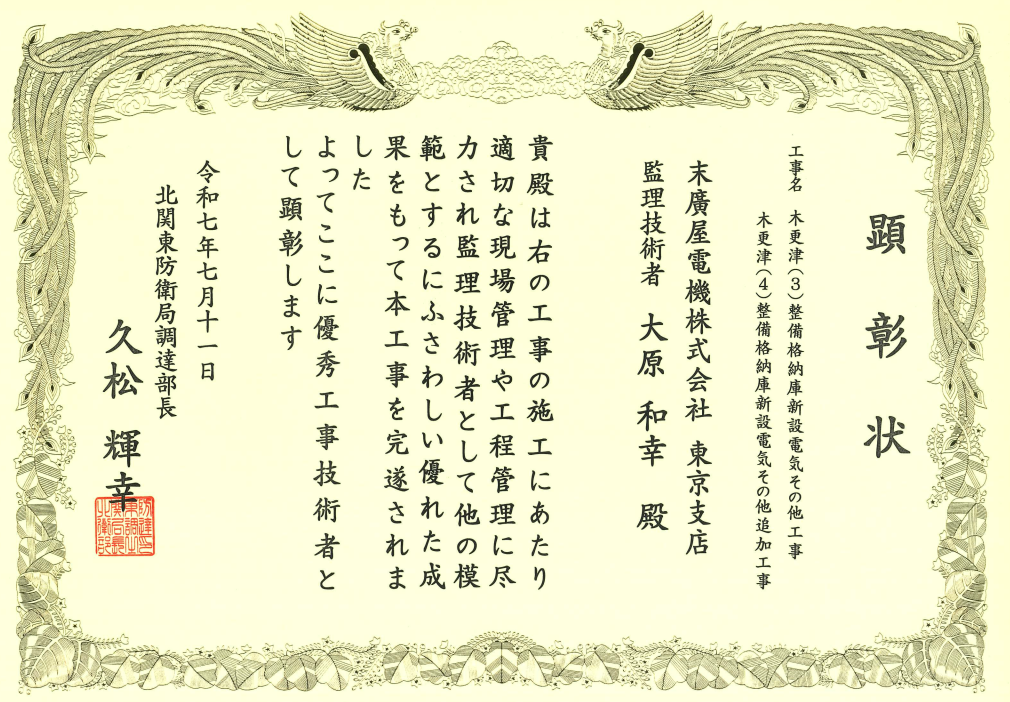 顕彰状
工事名　木更津（３）整備格納庫新設電気その他工事
木更津（４）整備格納庫新設電気その他追加工事
末廣屋電機株式会社　東京支店
監理技術者　大原　和幸　殿
貴殿は右の工事の施工にあたり
適切な現場管理や工程管理に尽
力され監理技術者として他の模
範とするにふさわしい優れた成
果をもって本工事を完遂されま
した
よってここに優秀工事技術者と
して顕彰します
令和七年七月十一日
北関東防衛局調達部長
久松　輝幸